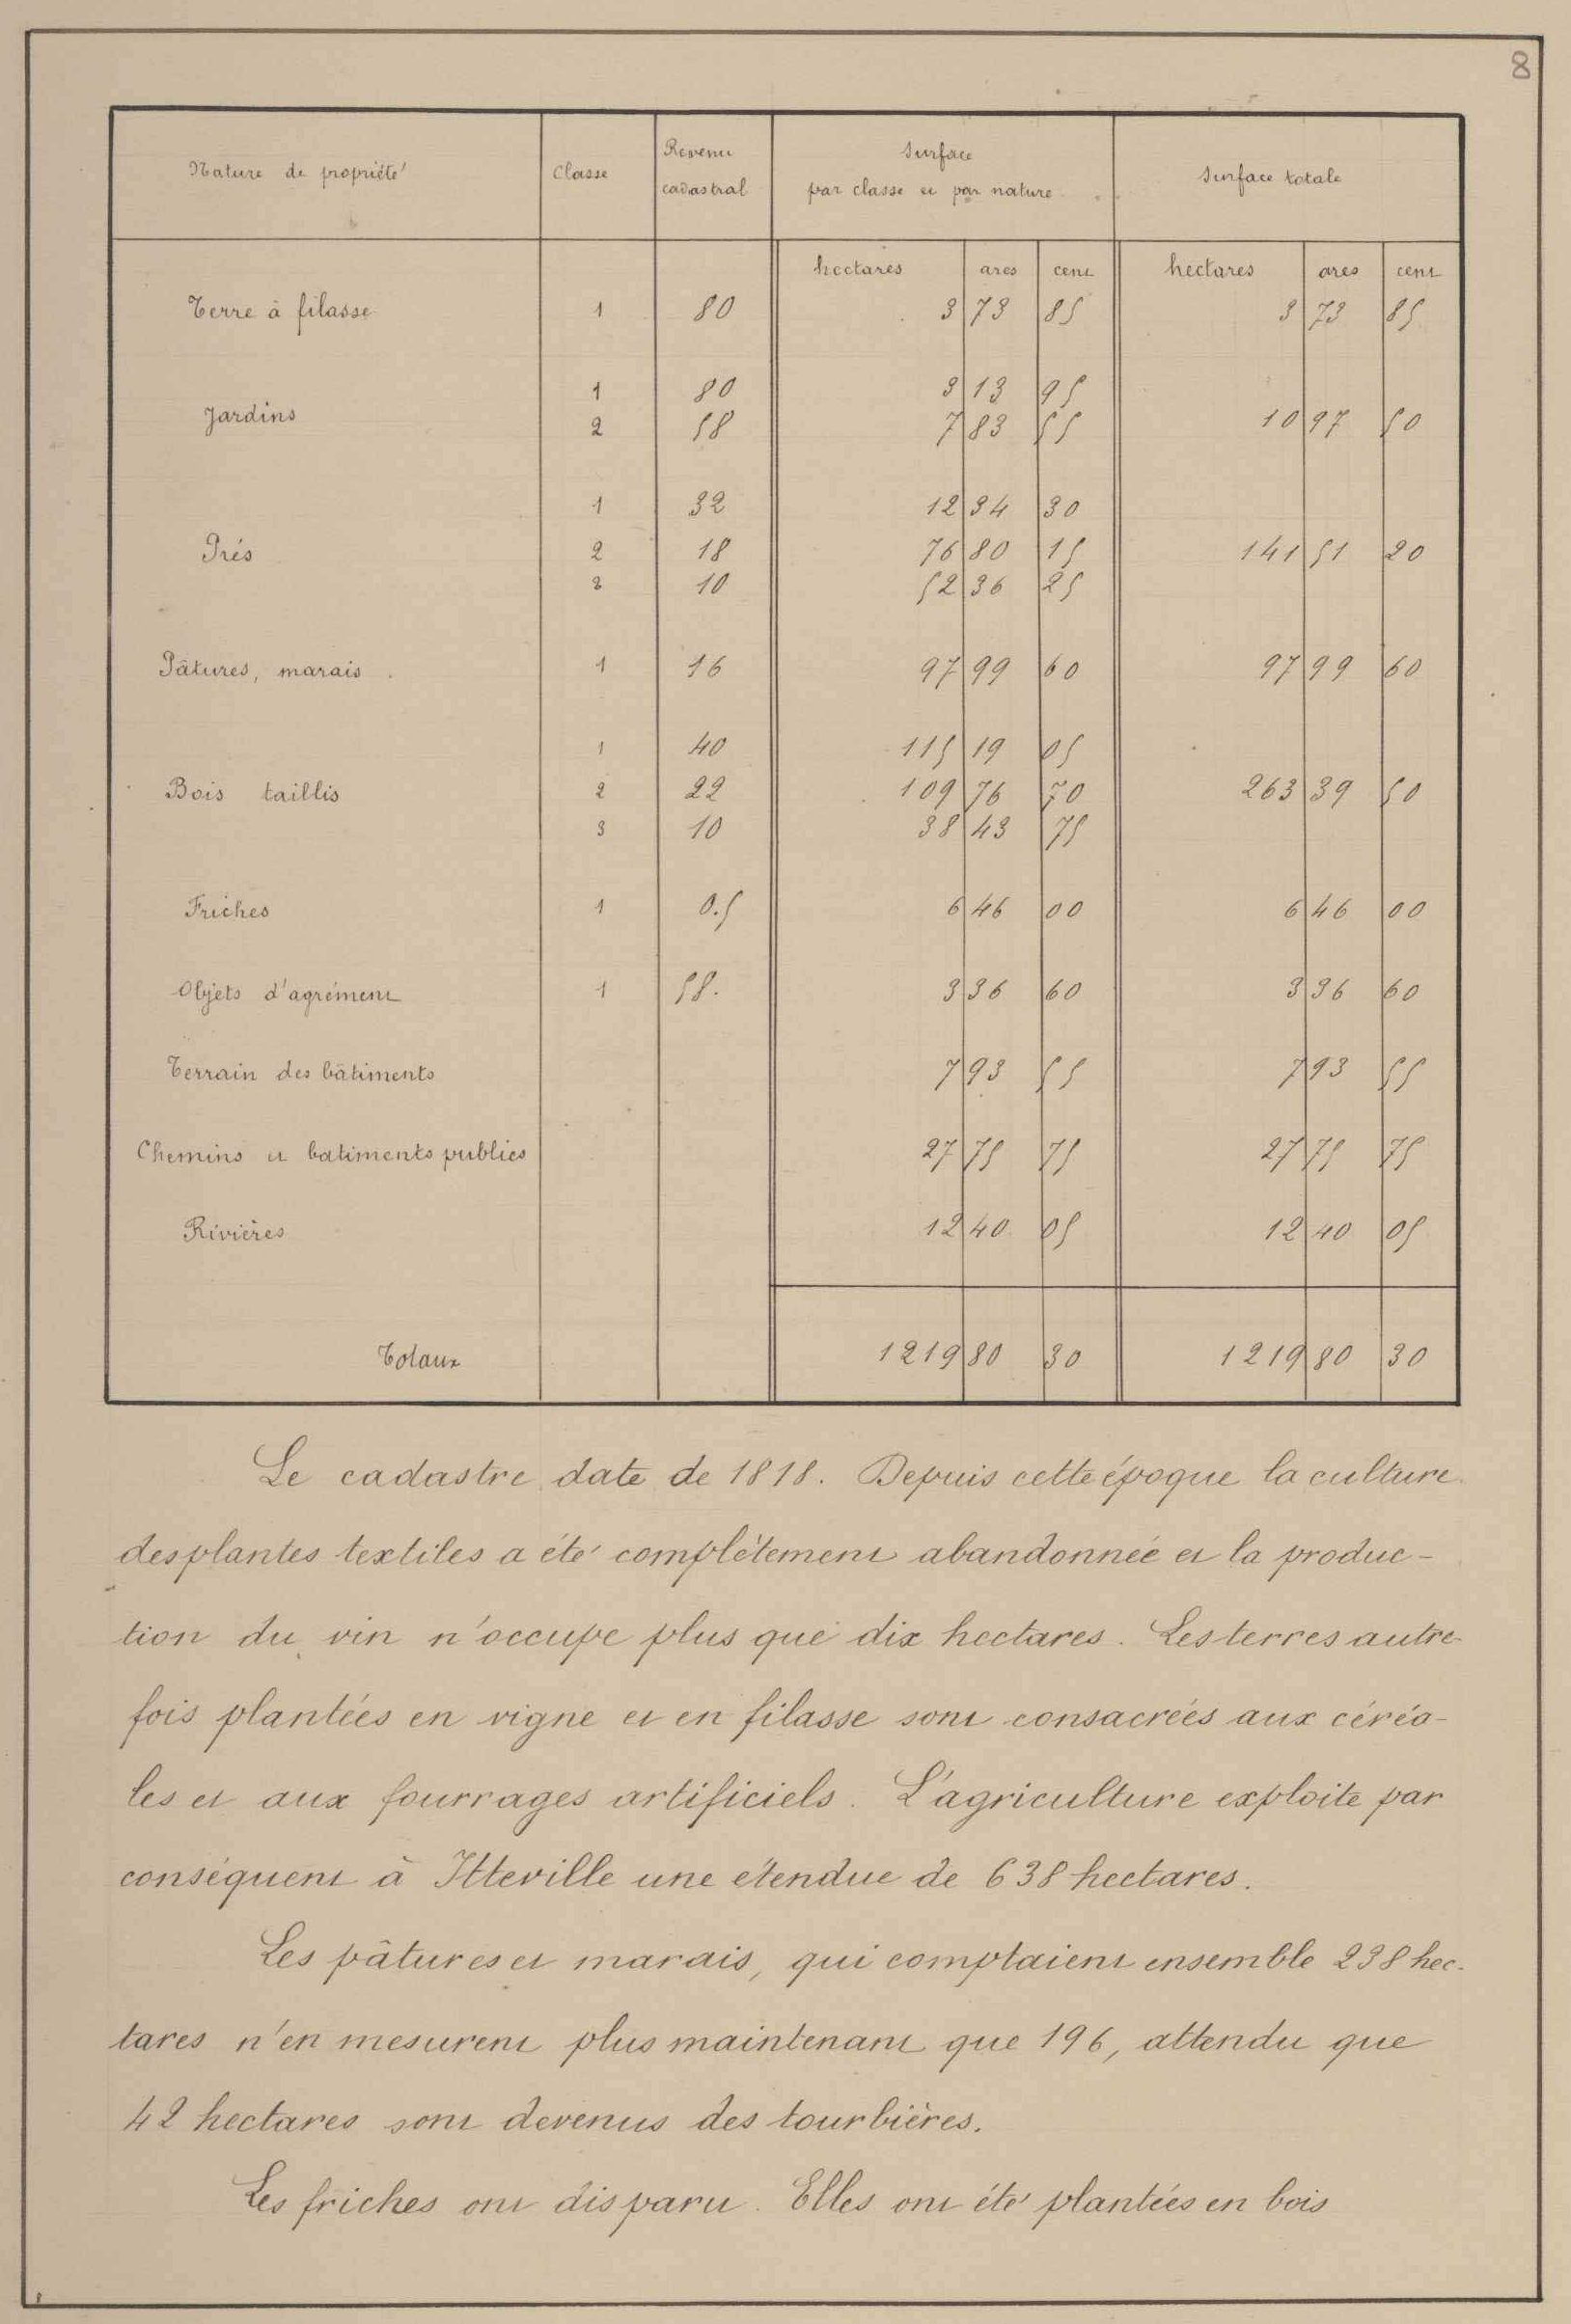 8
Nature de propriété Classe Revenu cadastral Surface par classe et par nature Surface totale
hectares ares cent hectares ares cent
Terre à filasse 1 80 3 73 85 3 73 85
1 80 3 13 95
Jardins 10 97 50
2 58 7 83 55
1 32 12 34 30
Prés 2 18 76 80 15 141 51 20
3 10 52 36 25
Pâtures, marais 1 16 97 99 60 97 99 60
1 40 115 19 05
Bois taillis 2 22 109 76 70 263 39 50
3 10 38 43 75
Friches 1 0.5 6 46 00 6 46 00
Objets d'agrément 1 58. 3 36 60 3 36 60
Terrain des bâtiments 7 93 55 7 93 55
Chemins et batiments publics 27 75 75 27 75 75
Rivières 12 40 05 12 40 05
Totaux 1219 80 30 1219 80 30
Le cadastre date de 1818. Depuis cette époque la culture
des plantes textiles a été complètement abandonnée et la produc-
tion du vin n'occupe plus que dix hectares. Les terres autre-
fois plantées en vigne et en filasse sont consacrées aux céréa-
les et aux fourrages artificiels. L'agriculture exploite par
conséquent à Itteville une étendue de 638 hectares.
Les pâtures et marais, qui comptaient ensemble 238 hec-
tares n'en mesurent plus maintenant que 196, attendu que
42 hectares sont devenus des tourbières.
Les friches ont disparu. Elles ont été plantées en bois